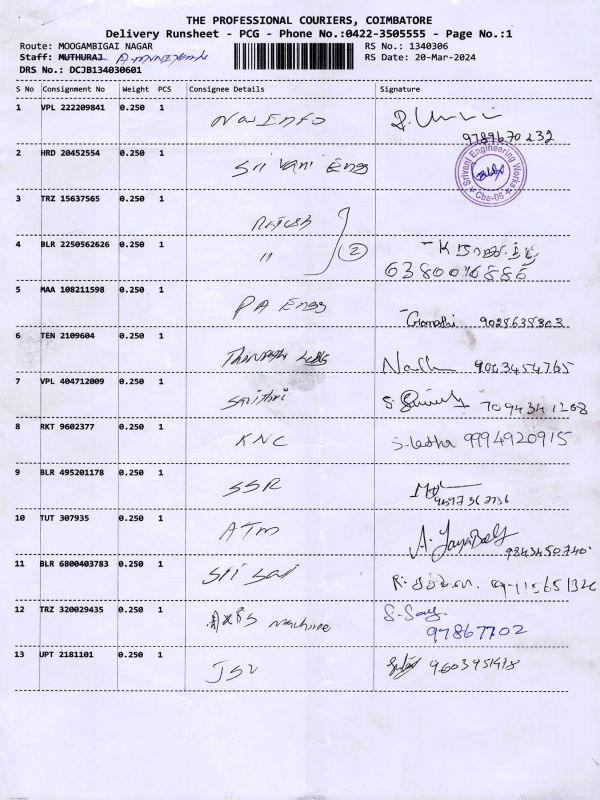 THE PROFESSIONAL COURIERS, COIMBATORE
Delivery Runsheet - PCG - Phone No.:0422-3505555 - Page No.:1
Route: MOOGAMBIGAI NAGAR
RS No.: 1340306
Staff: MUTHURAJ
RS Date: 20-Mar-2024
DRS No.: DCJB134030601
S No Consignment No Weight PCS Consignee Details Signature
1 VPL 222209841 0.250 1 New Info
9789670232
2 HRD 20452554 0.250 1 Sri Vani Engg
Srivani Engineering Works Cbe-06
3 TRZ 15637565 0.250 1 Rajesh
4 BLR 2250562626 0.250 1 " 2
5 MAA 108211598 0.250 1 PA Engg Gomathi 9025635303
6 TEN 2109604 0.250 1 9003454765
7 VPL 404712009 0.250 1 Savithri 7094341208
8 RKT 9602377 0.250 1 KNC S. Latha 9994920915
9 BLR 495201178 0.250 1 SSR
10 TUT 307935 0.250 1 ATM 9843450740
11 BLR 6800403783 0.250 1 Sri Sai
12 TRZ 320029435 0.250 1 Axis machine
97867702
13 UPT 2181101 0.250 1 JSV